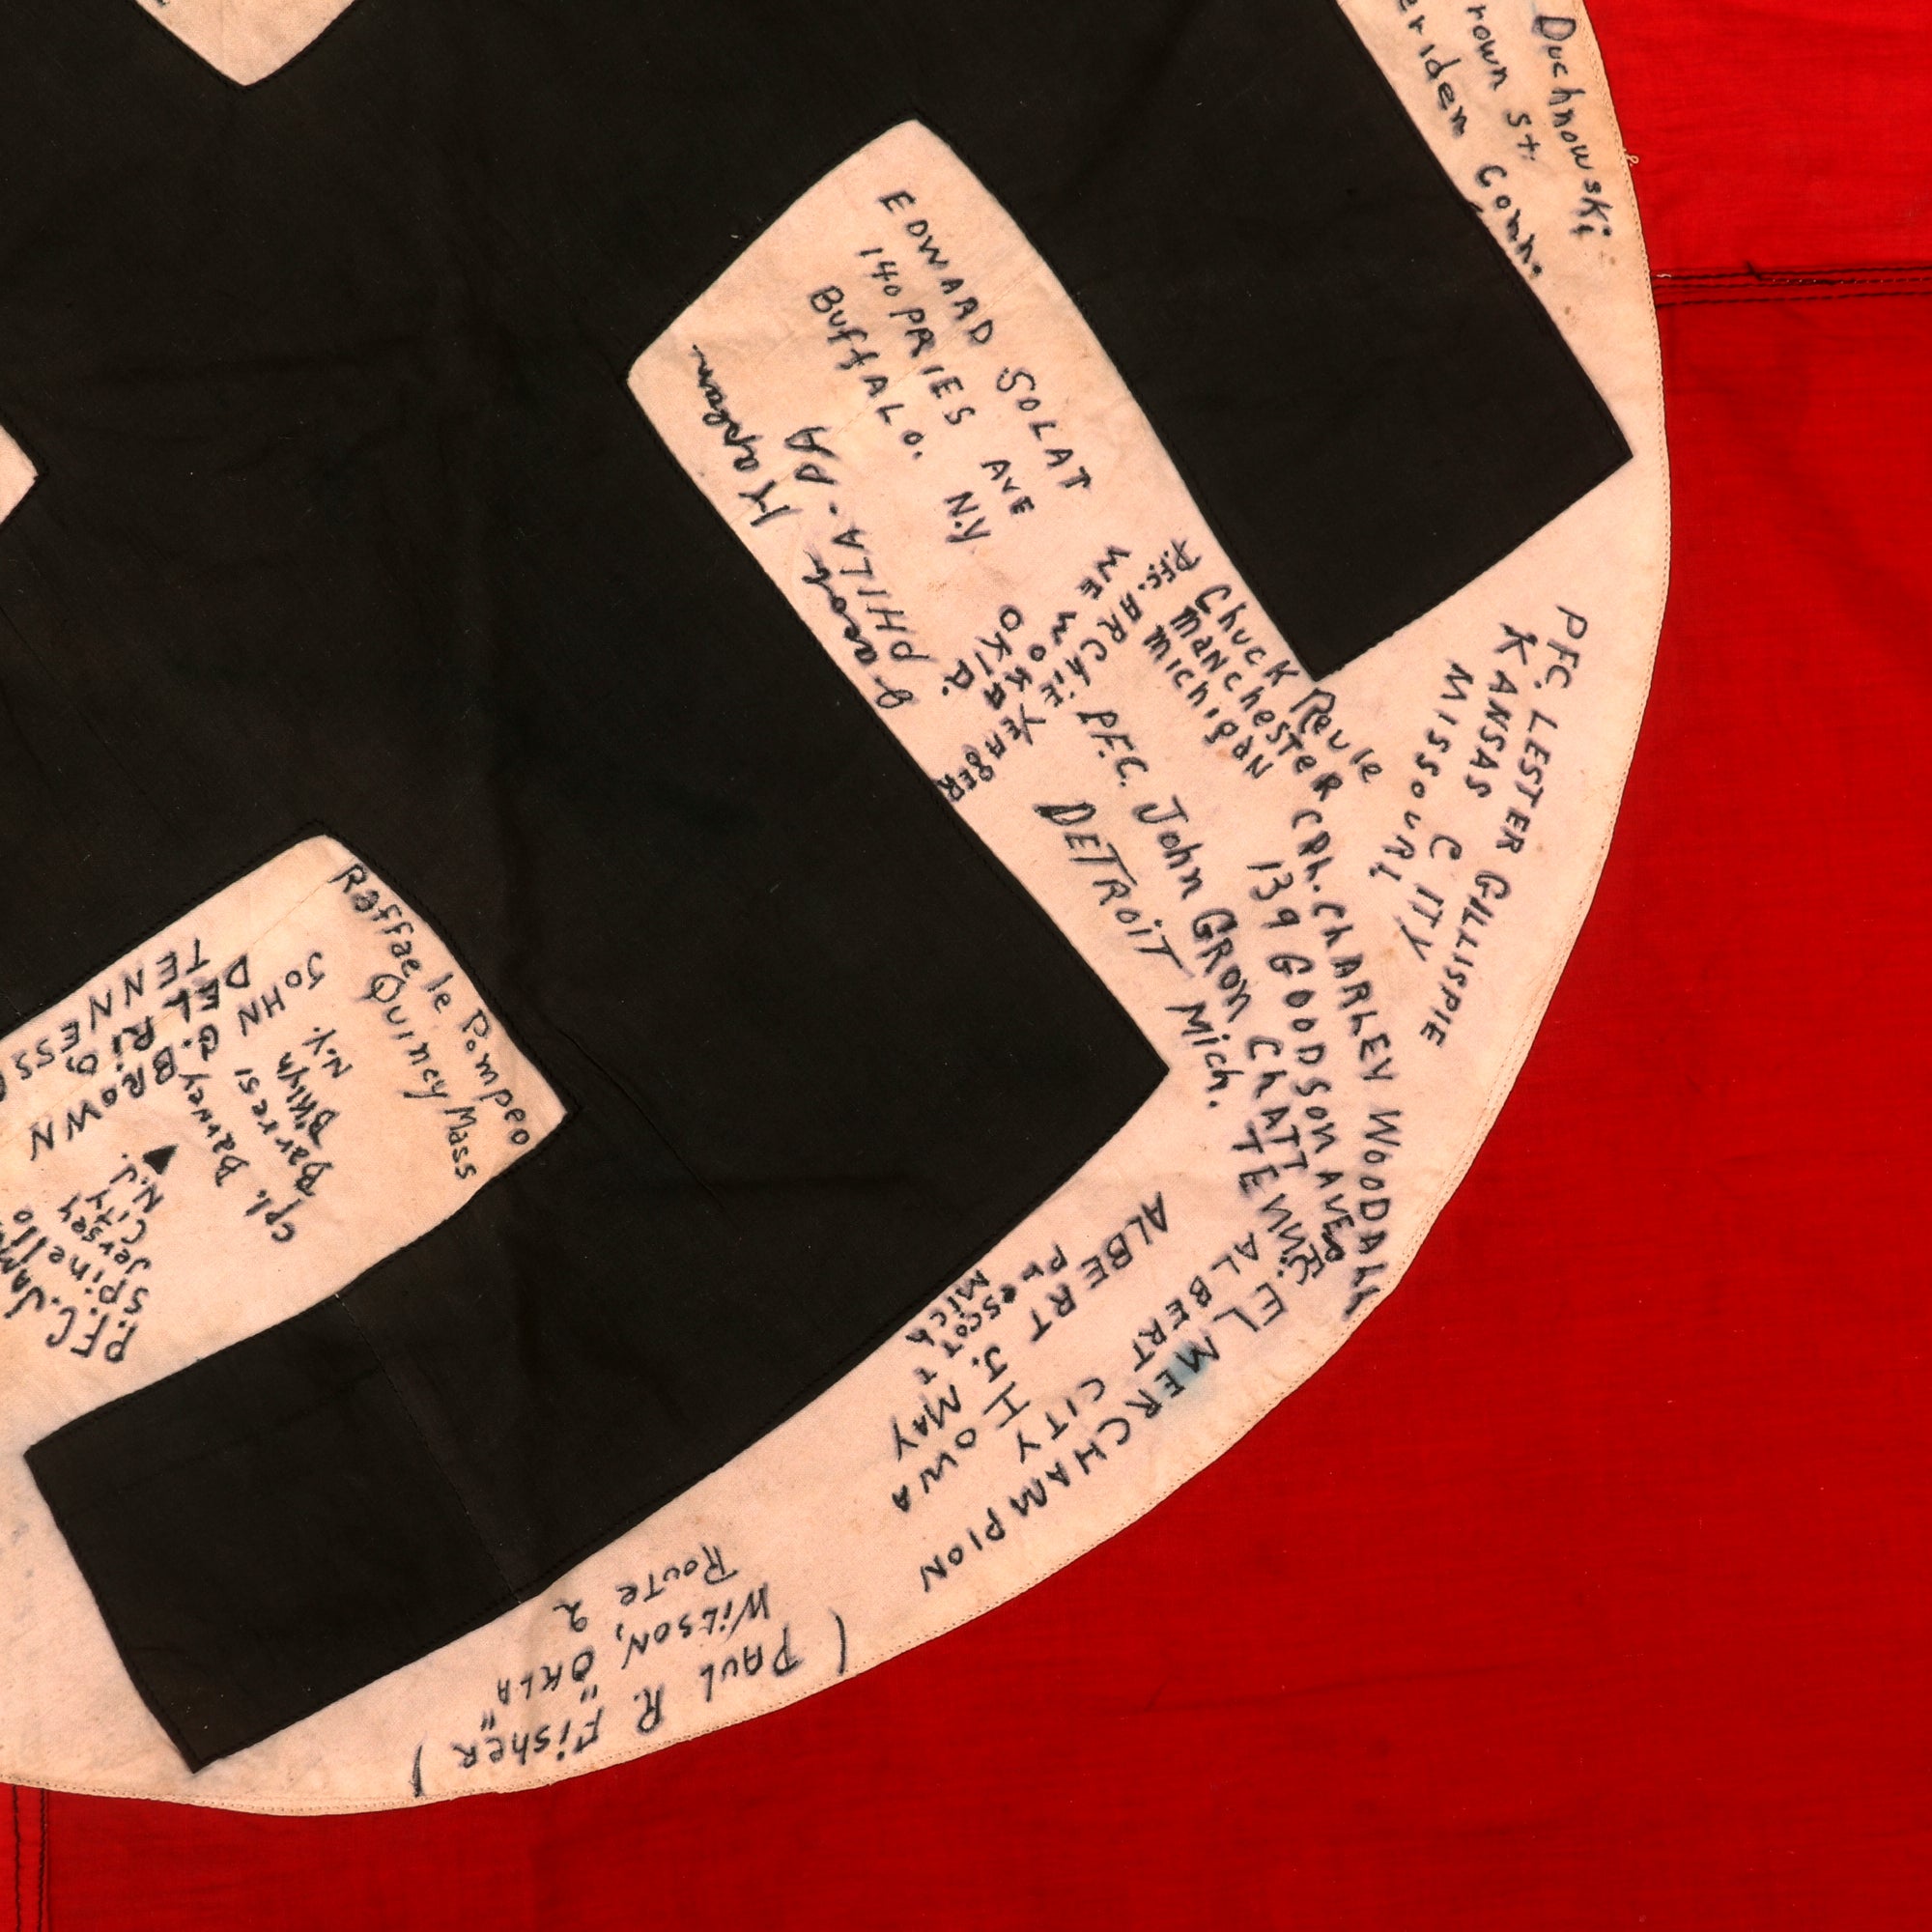 Duchnowski
rown St.
eriden Conn.
EDWARD SOLAT
140 PRIES AVE
BuffALO. N.Y.
Jacob Kaplan
PHILA. PA
Chuck Reule
Manchester
Michigan
PFC. ARCHIE YEAGER
WEWOKA
OKLA.
P.F.C. John GRON
DETROIT Mich.
CPL. ChARLEY WOODALL
139 GOODSON AVE
ChATT TENN.
PFC. LESTER GILLISPIE
KANSAS CITY
MISSOURI
PFC. ELMER CHAMPION
ALBERT CITY
IOWA
ALBERT J. MAY
PRESCOTT
MICH
( PAUL R. FisheR )
WILSON, OKLA
Route 2 " "
Raffaele Pompeo
Quincy Mass
Cpl. Barney
Barresi
B'klyn
N.Y.
JOHN G. BROWN
DEL RIO
TENNESS
P.F.C. JAM
Spinello
Jersey
City
N.J.